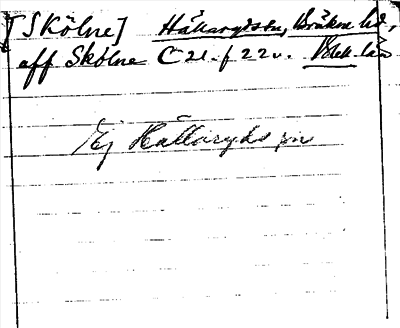 [Skölne] Hällaryds sn, Bräkne hd,
aff Skölne C 21. f 22v. Blek. län
Ej Hällaryds sn